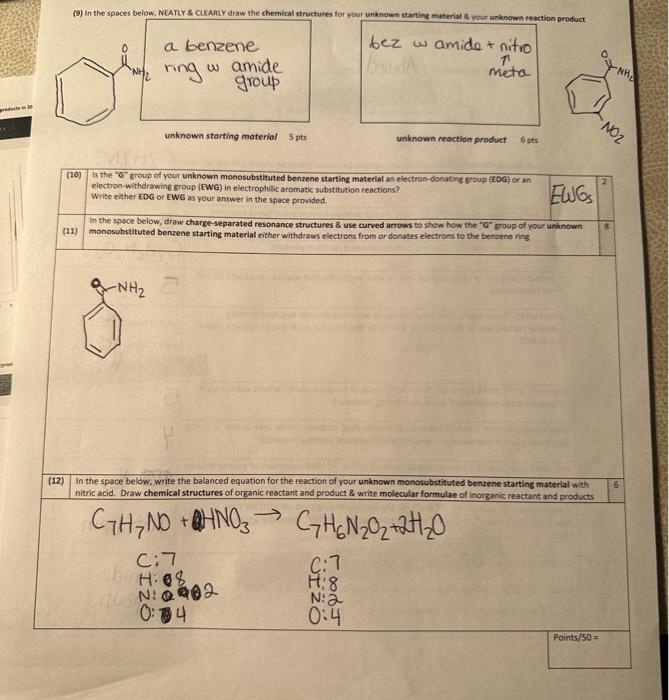 (9) In the spaces below, NEATLY & CLEARLY draw the chemical structures for your unknown starting material & your unknown reaction product
O
NH2
a benzene
ring w amide
group
bez w amide + nitro
↑
meta
O
NH2
NO2
products in 20
unknown starting material 5 pts
unknown reaction product 6 pts
(10) Is the "G" group of your unknown monosubstituted benzene starting material an electron-donating group (EDG) or an
electron-withdrawing group (EWG) in electrophilic aromatic substitution reactions?
Write either EDG or EWG as your answer in the space provided.
EWGs
2
(11) In the space below, draw charge-separated resonance structures & use curved arrows to show how the "G" group of your unknown
monosubstituted benzene starting material either withdraws electrons from or donates electrons to the benzene ring
8
NH2
(12) In the space below, write the balanced equation for the reaction of your unknown monosubstituted benzene starting material with
nitric acid. Draw chemical structures of organic reactant and product & write molecular formulae of inorganic reactant and products
6
C7H7NO + HNO3 → C7H6N2O2+2H2O
C:7
H: 8
N: 2
O: 4
C:7
H:8
N:2
O:4
Points/50 =